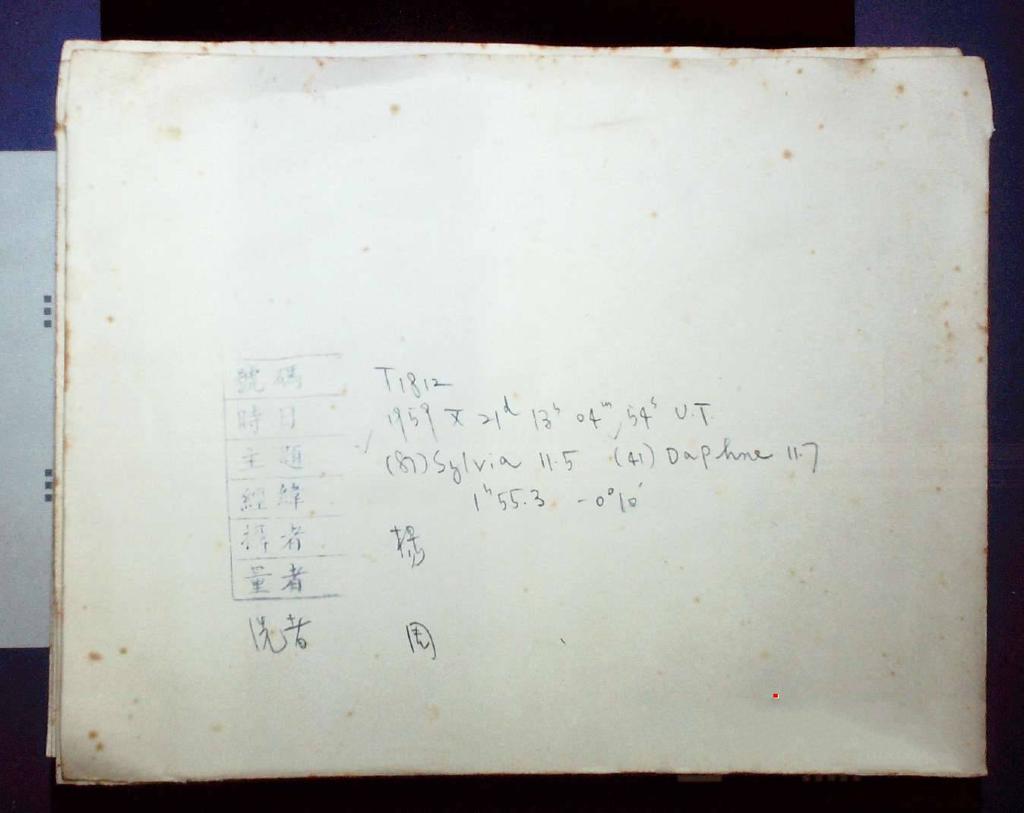 號碼 T1812
時日 1959 X 21d 13h 04m 54s U.T.
主題 (87) Sylvia 11.5 (41) Daphne 11.7
經緯 1h 55.3 -0°10'
擇者 楊
量者
洗者 周